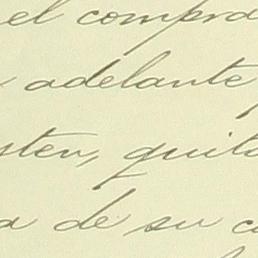 el compra
adelante
sten, quit
a de su c